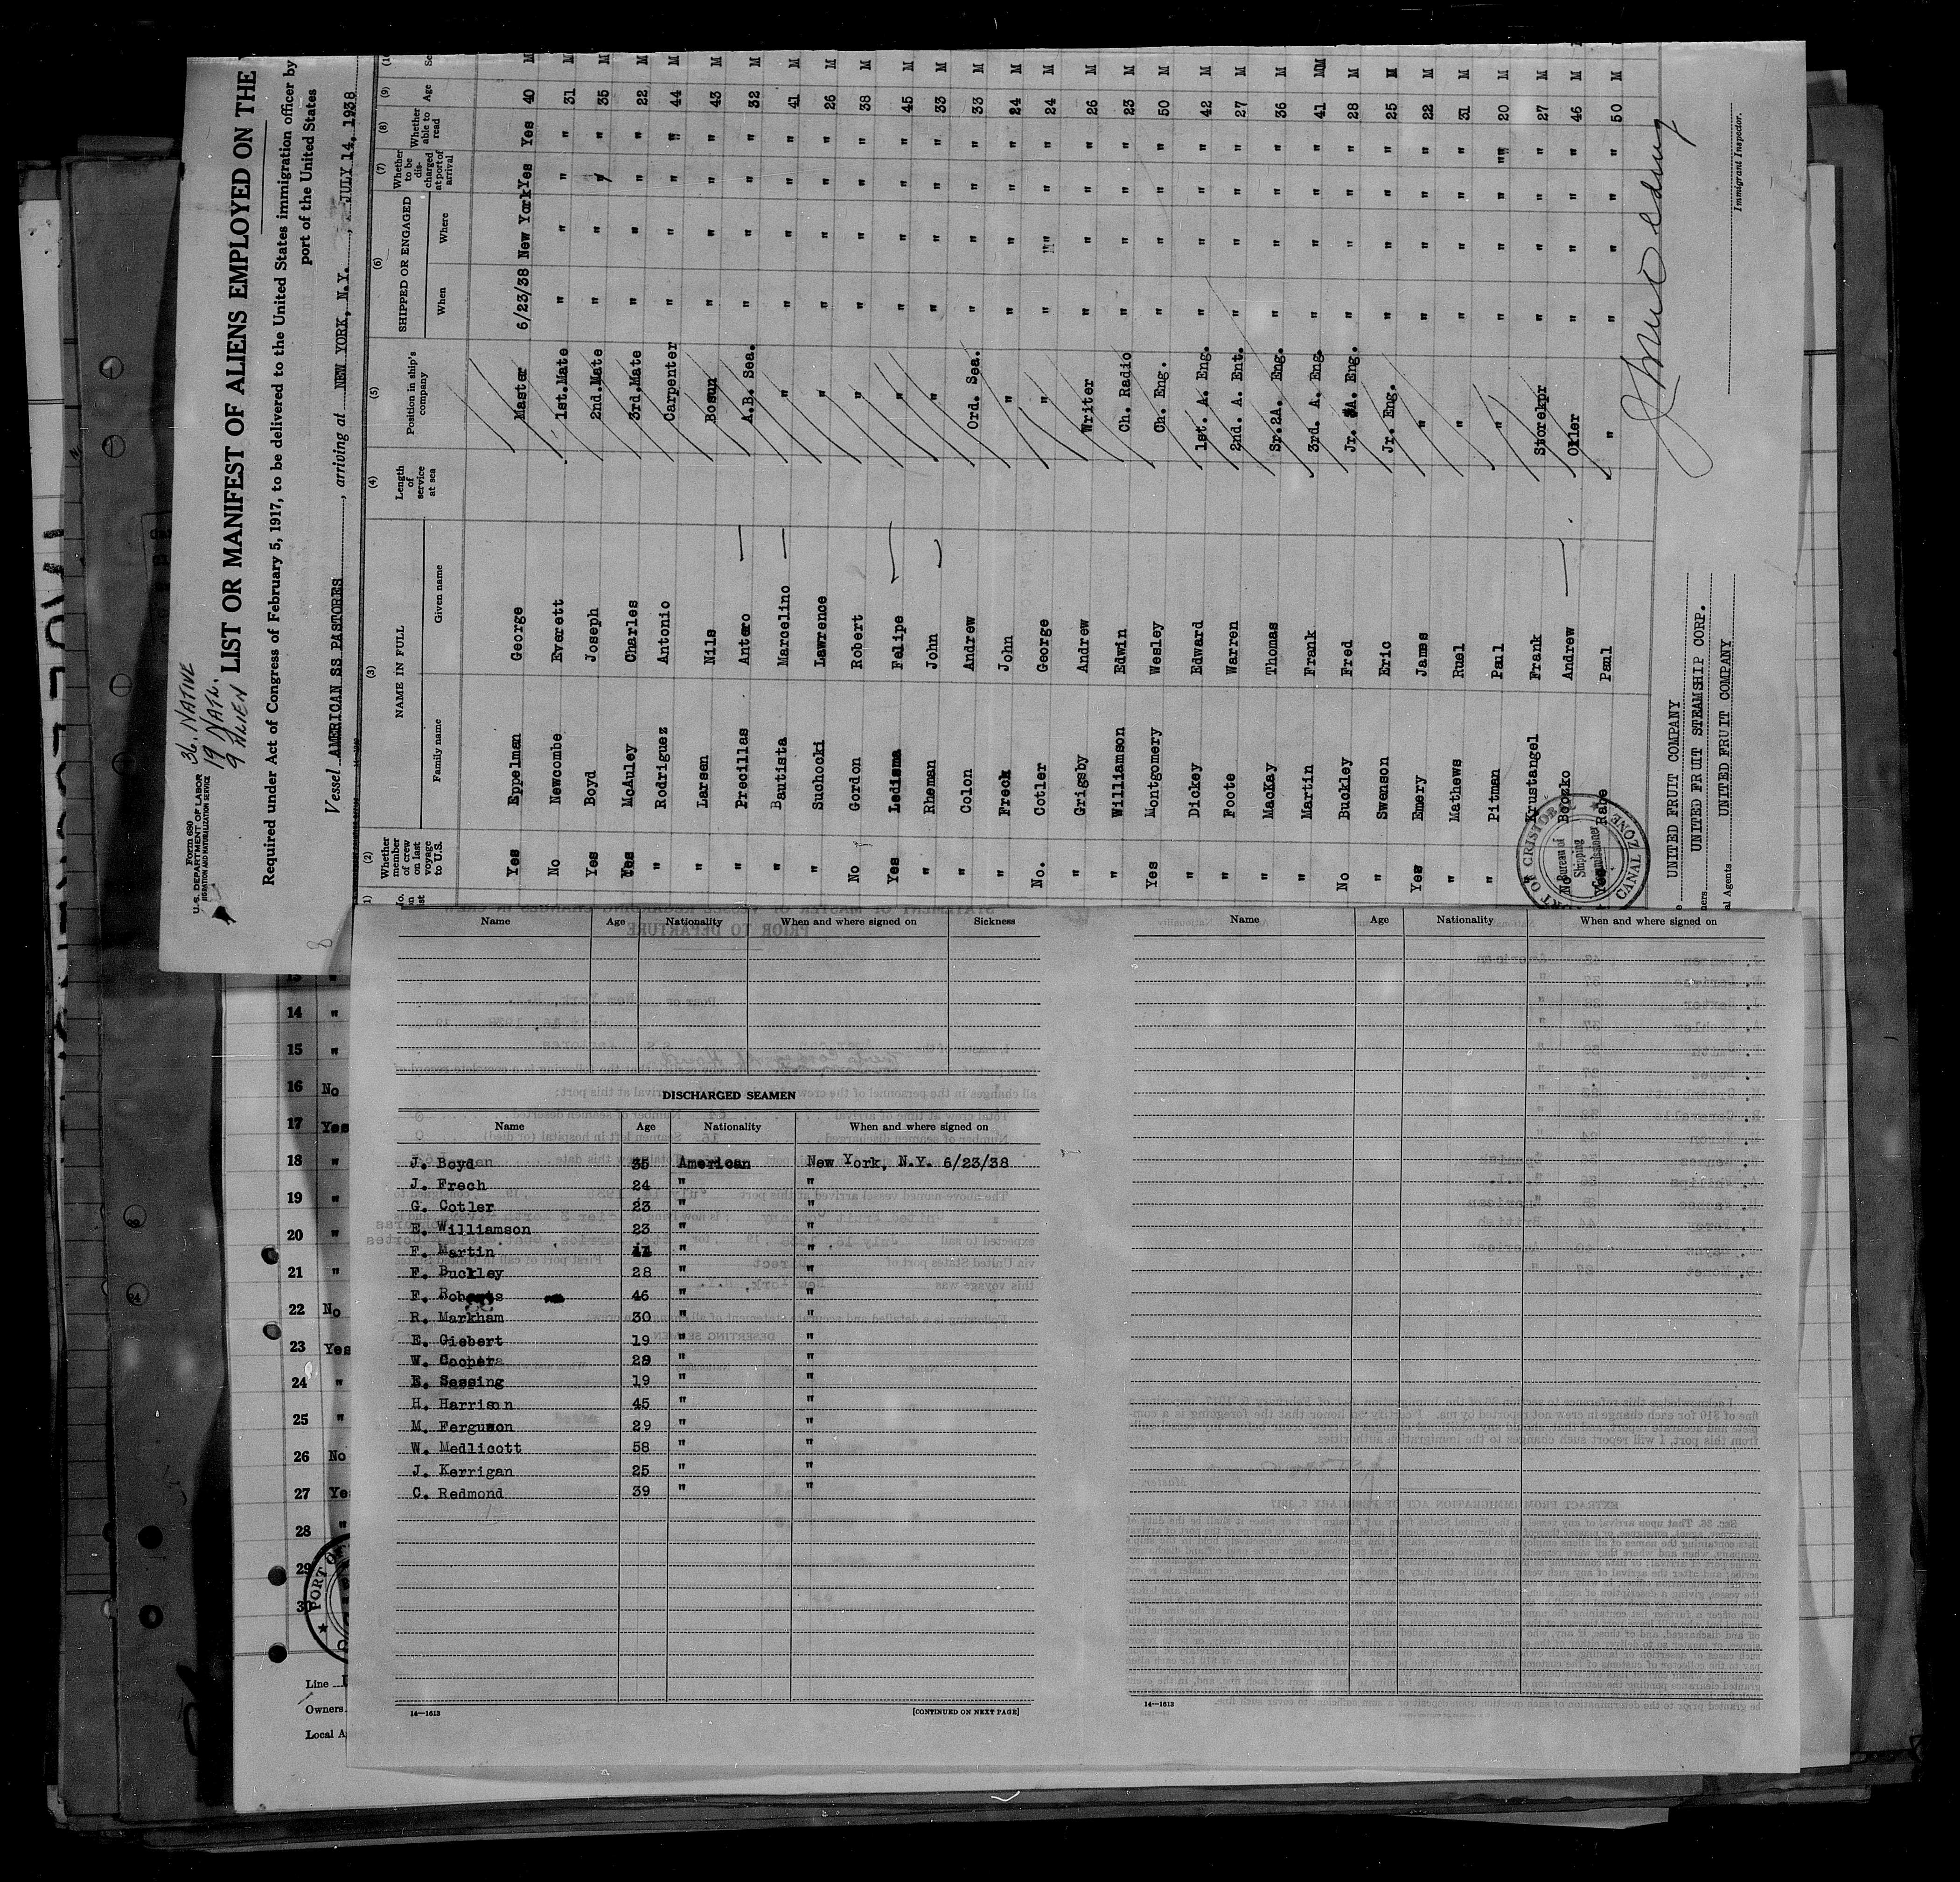 36 NATIVE
19 NATL.
9 ALIEN
Form 680
U.S. DEPARTMENT OF LABOR
IMMIGRATION AND NATURALIZATION SERVICE
LIST OR MANIFEST OF ALIENS EMPLOYED ON THE
Required under Act of Congress of February 5, 1917, to be delivered to the United States immigration officer by
port of the United States
Vessel AMERICAN SS PASTORES, arriving at NEW YORK, N.Y., JULY 14, 1938
(2) (3) (4) (5) (6) (7) (8) (9)
Whether member of crew on last voyage to U.S. NAME IN FULL Family name Given name Length of service at sea Position in ship's company SHIPPED OR ENGAGED When Where Whether to be discharged at port of arrival Whether able to read Age
Yes Eppelman George Master 6/23/38 New York Yes Yes 40 M
No Newcombe Everett 1st.Mate " " " " 31 M
Yes Boyd Joseph 2nd.Mate " " " " 35 M
Yes McAuley Charles 3rd.Mate " " " " 22 M
" Rodriguez Antonio Carpenter " " " " 44 M
" Larsen Nils Bosun " " " " 43 M
" Precillas Antero A.B. Sea. " " " " 32 M
" Bautista Marcelino " " " " " 41 M
" Suchocki Lawrence " " " " " 26 M
No Gordon Robert " " " " " 38 M
Yes Ledisma Felipe " " " " " 45 M
" Rheman John " " " " " 33 M
" Colon Andrew Ord. Sea. " " " " 33 M
" Freck John " " " " " 24 M
No. Cotler George " " " " " 24 M
" Grigsby Andrew Writer " " " " 26 M
" Williamson Edwin Ch. Radio " " " " 23 M
Yes Montgomery Wesley Ch. Eng. " " " " 50 M
" Dickey Edward 1st. A. Eng. " " " " 42 M
" Foote Warren 2nd. A. Ent. " " " " 27 M
" MacKay Thomas Sr.2A. Eng. " " " " 36 M
" Martin Frank 3rd. A. Eng. " " " " 41 M
No Buckley Fred Jr. A. Eng. " " " " 28 M
" Swenson Eric Jr. Eng. " " " " 25 M
Yes Emery James " " " " " 22 M
" Mathews Ruel " " " " " 31 M
" Pitman Paul " " " " " 20 M
Krustangel Frank Storekpr " " " " 27 M
No Boozko Andrew Oiler " " " " 46 M
Yes Rabe Paul " " " " " 50 M
PORT OF CRISTOBAL
Bureau of
Shipping
Commissioner
CANAL ZONE
UNITED FRUIT COMPANY
UNITED FRUIT STEAMSHIP CORP.
UNITED FRUIT COMPANY
Immigrant Inspector.
Name Age Nationality When and where signed on Sickness
DISCHARGED SEAMEN
Name Age Nationality When and where signed on
J. Boyd 35 American New York, N.Y. 6/23/38
J. Frech 24 " "
G. Cotler 23 " "
E. Williamson 23 " "
F. Martin 41 " "
F. Buckley 28 " "
F. Roberts 46 " "
R. Markham 30 " "
E. Giebert 19 " "
W. Cooper 29 " "
E. Sessing 19 " "
H. Harrison 45 " "
M. Ferguson 29 " "
W. Medlicott 58 " "
J. Kerrigan 25 " "
C. Redmond 39 " "
14—1613 [CONTINUED ON NEXT PAGE]
Name Age Nationality When and where signed on
14—1613
14 "
15 "
16 No
17 Yes
18 "
19 "
20 "
21 "
22 No
23 Yes
24 "
25 "
26 No
27 Yes
28 "
29
30
PORT O
Line
Owners
Local A